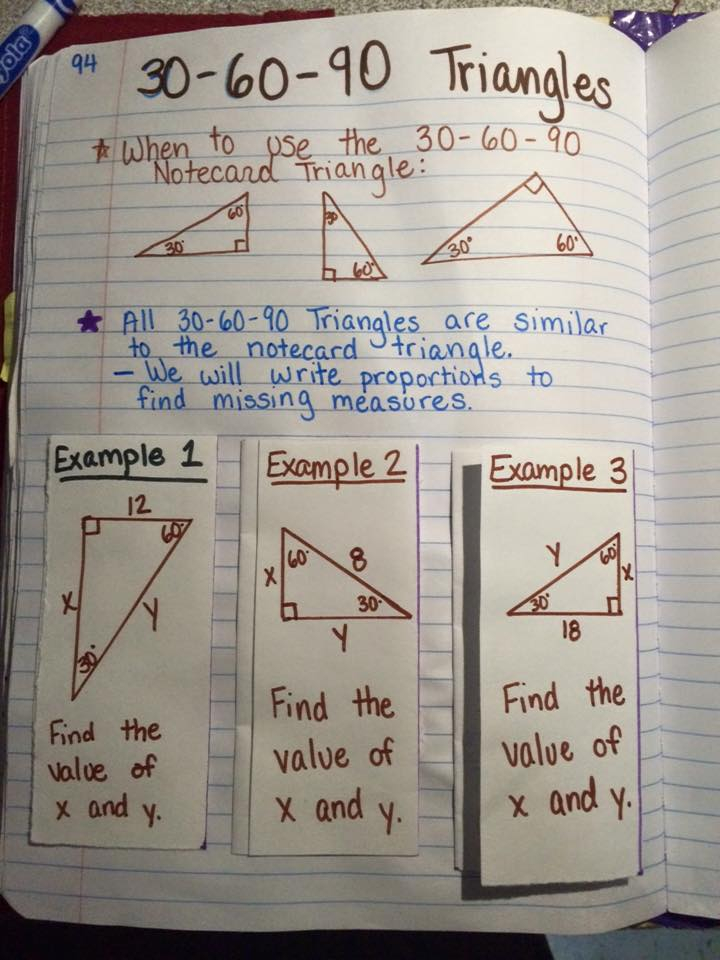 94
30-60-90 Triangles
★ When to use the 30-60-90
Notecard Triangle:
30° 60°
30 60°
30° 60°
★ All 30-60-90 Triangles are similar
to the notecard triangle.
- We will write proportions to
find missing measures.
Example 1
12
60°
x
y
30°
Find the
value of
x and y.
Example 2
60° 8
x
30°
y
Find the
value of
x and y.
Example 3
y 60°
x
30°
18
Find the
value of
x and y.